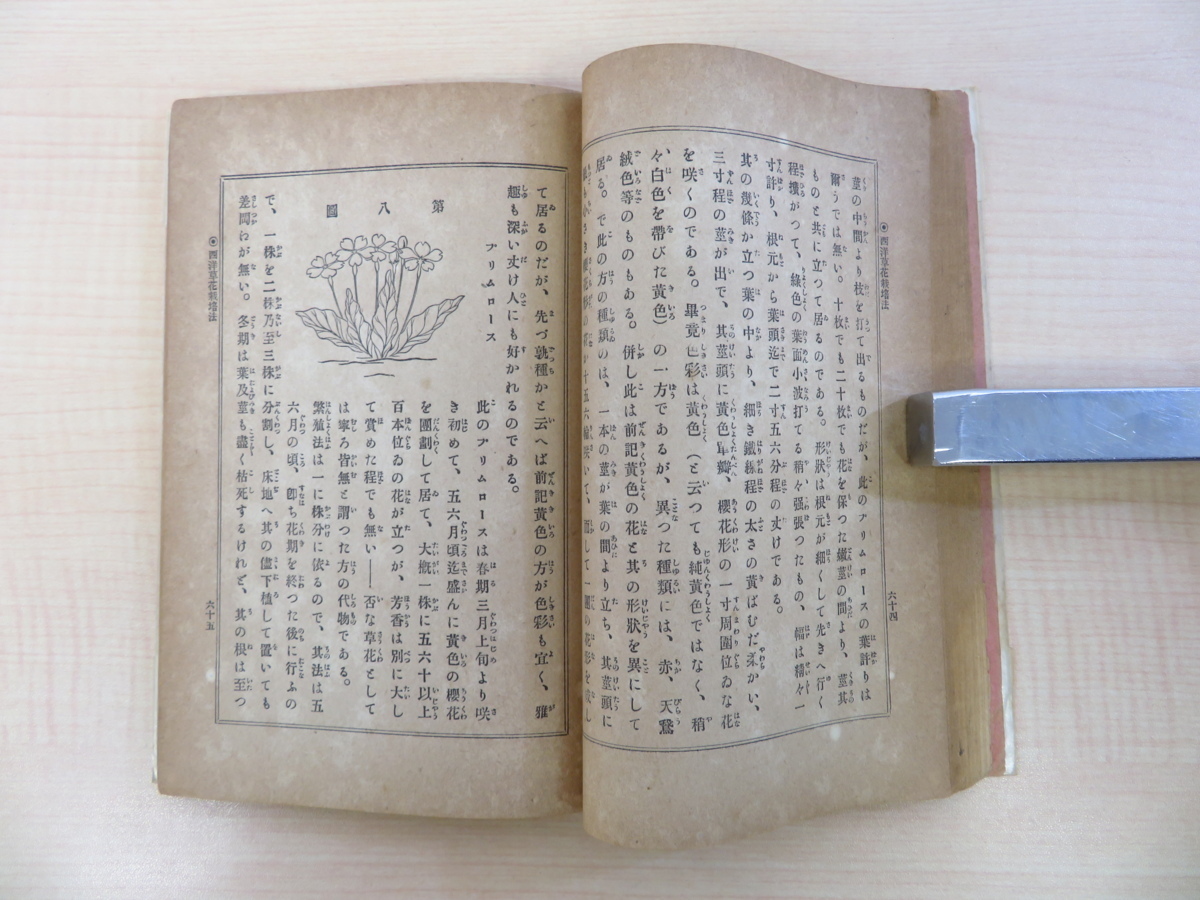 ◉西洋草花栽培法
六十四
莖の中間より枝を打て出るものだが、此のプリムロースの葉計りは
爾うでは無い。十枚でも二十枚でも花を保つた纖莖の間より、莖其
ものと共に立つて居るのである。形狀は根元が細くして先きへ行く
程擴がつて、綠色の葉面小波打てる稍々强張つたもの、幅は精々一
寸計り、根元から葉頭迄で二寸五六分程の丈けである。
其の幾條か立つ葉の中より、細き鐵絲程の太さの黃ばむだ柔かい、
三寸程の莖が出で、其莖頭に黃色單瓣、櫻花形の一寸周圍位ゐな花
を咲くのである。畢竟色彩は黃色(と云つても純黃色ではなく、稍
々白色を帶びた黃色)の一方であるが、異つた種類には、赤、天鵞
絨色等のものもある。併し此は前記黃色の花と其の形狀を異にして
居る。で此の方の種類のは、一本の莖が葉の間より立ち、其莖頭に
て居るのだが、先づ孰種かと云へば前記黃色の方が色彩も宜く、雅
趣も深い丈け人にも好かれるのである。
プリムロース
第八圖
此のプリムロースは春期三月上旬より咲
き初めて、五六月頃迄盛んに黃色の櫻花
を團劃して居て、大槪一株に五六十以上
百本位ゐの花が立つが、芳香は別に大し
て賞めた程でも無い――否な草花として
は寧ろ皆無と謂つた方の代物である。
繁殖法は一に株分に依るので、其法は五
六月の頃、卽ち花期を終つた後に行ふの
で、一株を二株乃至三株に分割し、床地へ其の儘下種して置いても
差閊わが無い。冬期は葉及莖も盡く枯死するけれど、其の根は至つ
◉西洋草花栽培法
六十五